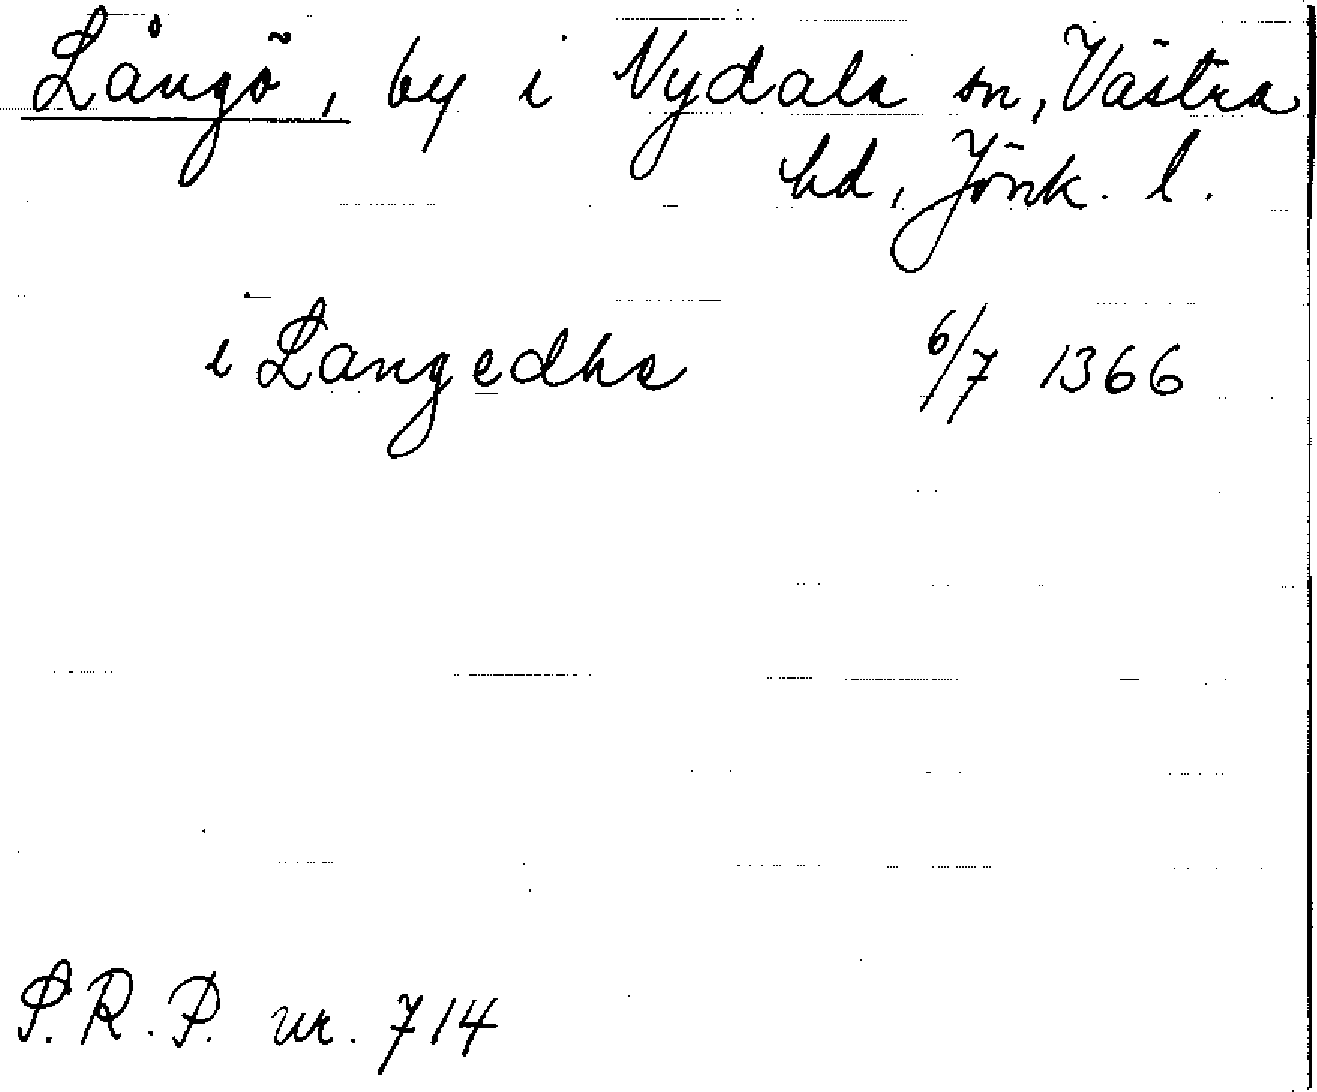 Långö, by i Nydala sn, Västra
hd, Jönk. l.
i Langedhe 6/7 1366
S.R.P. nr. 714